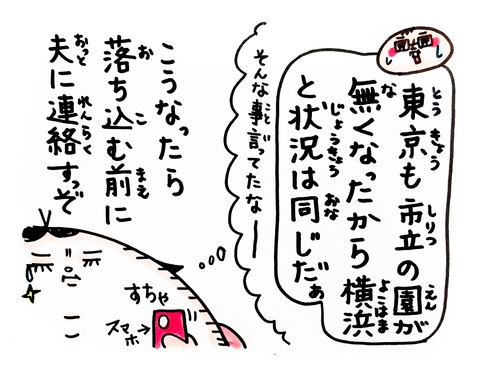 東京も市立の園が
無くなったから横浜
と状況は同じだぁ
そんな事言ってたなー
こうなったら
落ち込む前に
夫に連絡すっぞ
すちゃ
スマホ→